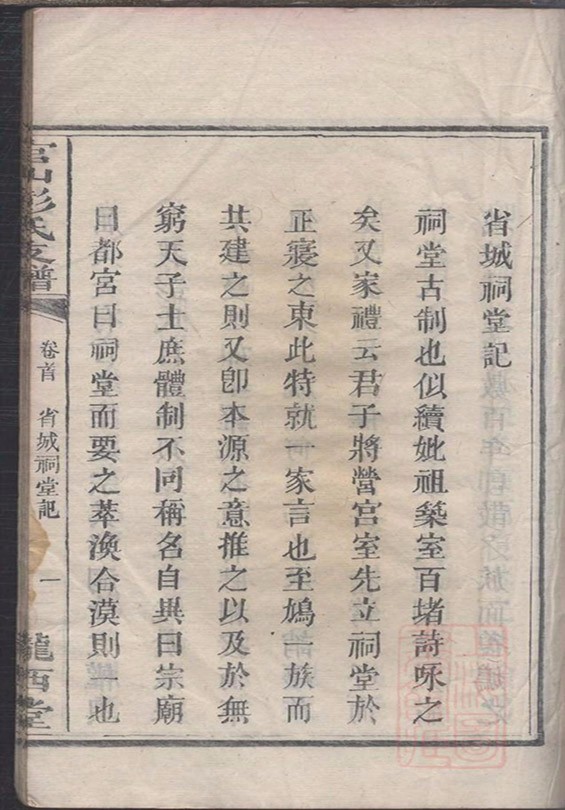 省城祠堂記
祠堂古制也似續妣祖築室百堵詩咏之
矣又家禮云君子將營宮室先立祠堂於
正寢之東此特就家言也至鳩族而
共建之則又卽本源之意推之以及於無
窮天子士庶體制不同稱名自異曰宗廟
曰都宮曰祠堂而要之萃渙合漠則一也
官山彭氏支譜
卷首 省城祠堂記 一
隴西堂